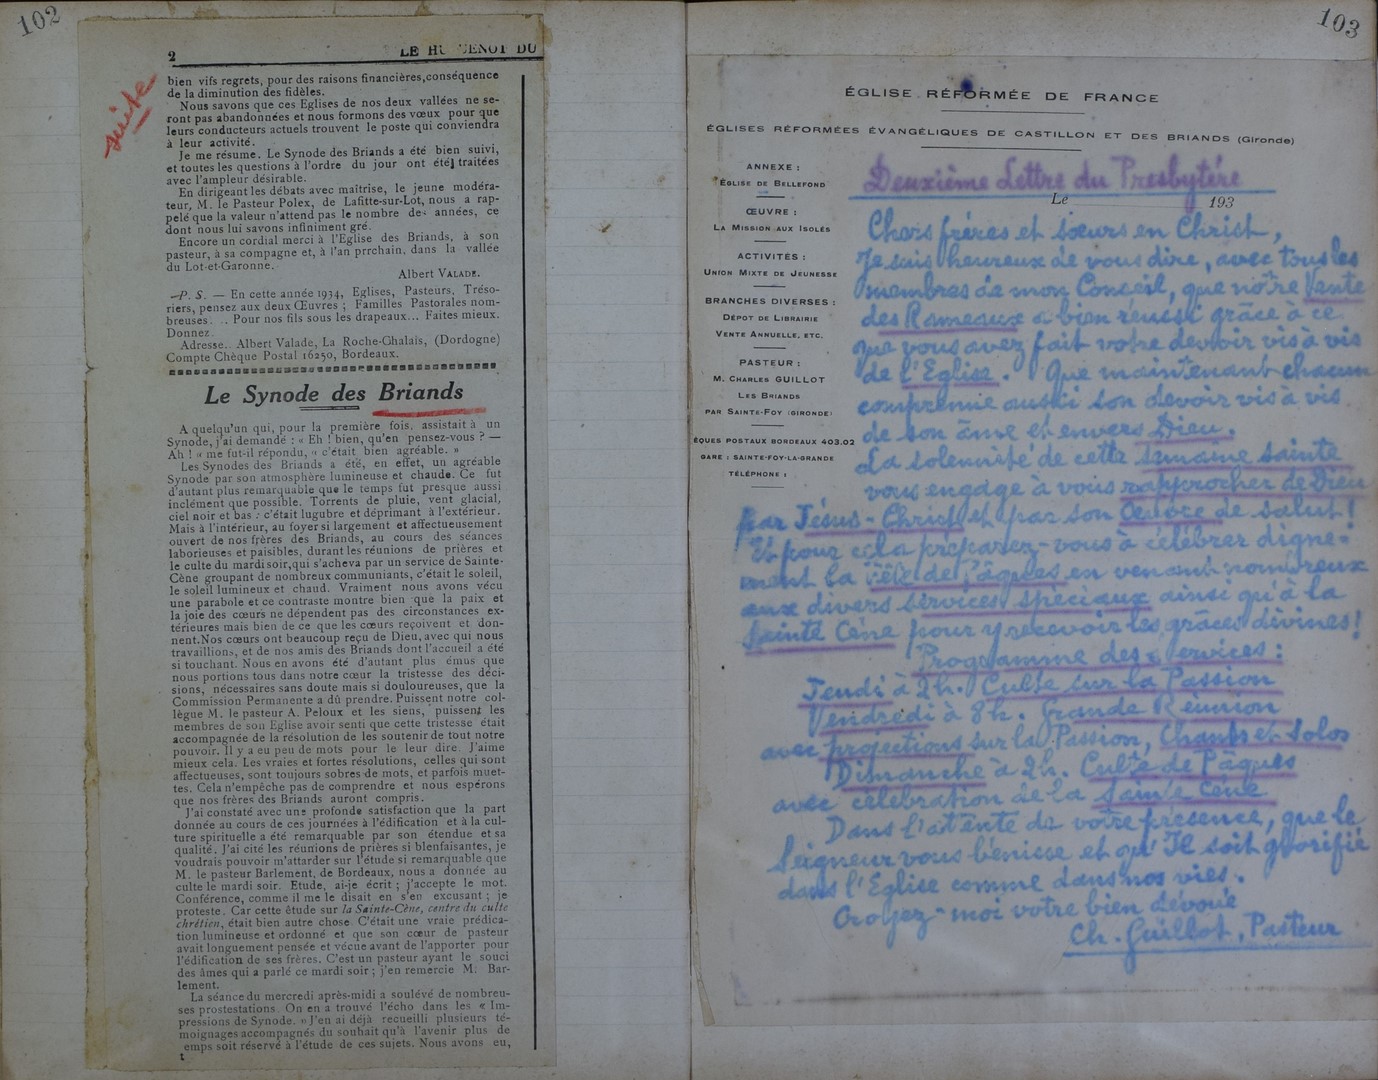 102
suite
2 LE HUGUENOT DU
bien vifs regrets, pour des raisons financières,conséquence
de la diminution des fidèles.
Nous savons que ces Eglises de nos deux vallées ne se-
ront pas abandonnées et nous formons des vœux pour que
leurs conducteurs actuels trouvent le poste qui conviendra
à leur activité.
Je me résume. Le Synode des Briands a été bien suivi,
et toutes les questions à l'ordre du jour ont été traitées
avec l'ampleur désirable.
En dirigeant les débats avec maîtrise, le jeune modéra-
teur, M. le Pasteur Polex, de Lafitte-sur-Lot, nous a rap-
pelé que la valeur n'attend pas le nombre des années, ce
dont nous lui savons infiniment gré.
Encore un cordial merci à l'Eglise des Briands, à son
pasteur, à sa compagne et, à l'an prrchain, dans la vallée
du Lot-et-Garonne.
Albert VALADE.
—P. S. — En cette année 1934, Eglises, Pasteurs, Tréso-
riers, pensez aux deux Œuvres ; Familles Pastorales nom-
breuses. .. Pour nos fils sous les drapeaux... Faites mieux.
Donnez.
Adresse. Albert Valade, La Roche-Chalais, (Dordogne)
Compte Chèque Postal 16250, Bordeaux.
Le Synode des Briands
A quelqu'un qui, pour la première fois, assistait à un
Synode, j'ai demandé : « Eh ! bien, qu'en pensez-vous ? —
Ah ! » me fut-il répondu, « c'était bien agréable. »
Les Synodes des Briands a été, en effet, un agréable
Synode par son atmosphère lumineuse et chaude. Ce fut
d'autant plus remarquable que le temps fut presque aussi
inclément que possible. Torrents de pluie, vent glacial,
ciel noir et bas : c'était lugubre et déprimant à l'extérieur.
Mais à l'intérieur, au foyer si largement et affectueusement
ouvert de nos frères des Briands, au cours des séances
laborieuses et paisibles, durant les réunions de prières et
le culte du mardi soir, qui s'acheva par un service de Sainte-
Cène groupant de nombreux communiants, c'était le soleil,
le soleil lumineux et chaud. Vraiment nous avons vécu
une parabole et ce contraste montre bien que la paix et
la joie des cœurs ne dépendent pas des circonstances ex-
térieures mais bien de ce que les cœurs reçoivent et don-
nent.Nos cœurs ont beaucoup reçu de Dieu, avec qui nous
travaillions, et de nos amis des Briands dont l'accueil a été
si touchant. Nous en avons été d'autant plus émus que
nous portions tous dans notre cœur la tristesse des déci-
sions, nécessaires sans doute mais si douloureuses, que la
Commission Permanente a dû prendre. Puissent notre col-
lègue M. le pasteur A. Peloux et les siens, puissent les
membres de son Eglise avoir senti que cette tristesse était
accompagnée de la résolution de les soutenir de tout notre
pouvoir. Il y a eu peu de mots pour le leur dire. J'aime
mieux cela. Les vraies et fortes résolutions, celles qui sont
affectueuses, sont toujours sobres de mots, et parfois muet-
tes. Cela n'empêche pas de comprendre et nous espérons
que nos frères des Briands auront compris.
J'ai constaté avec une profonde satisfaction que la part
donnée au cours de ces journées à l'édification et à la cul-
ture spirituelle a été remarquable par son étendue et sa
qualité. J'ai cité les réunions de prières si blenfaisantes, je
voudrais pouvoir m'attarder sur l'étude si remarquable que
M. le pasteur Barlement, de Bordeaux, nous a donnée au
culte le mardi soir. Etude, ai-je écrit ; j'accepte le mot.
Conférence, comme il me le disait en s'en excusant ; je
proteste. Car cette étude sur la Sainte-Cène, centre du culte
chrétien, était bien autre chose. C'était une vraie prédica-
tion lumineuse et ordonné et que son cœur de pasteur
avait longuement pensée et vécue avant de l'apporter pour
l'édification de ses frères. C'est un pasteur ayant le souci
des âmes qui a parlé ce mardi soir ; j'en remercie M. Bar-
lement.
La séance du mercredi après-midi a soulevé de nombreu-
ses prostestations. On en a trouvé l'écho dans les « Im-
pressions de Synode. » J'en ai déjà recueilli plusieurs té-
moignages accompagnés du souhait qu'à l'avenir plus de
emps soit réservé à l'étude de ces sujets. Nous avons eu,
t
103
ÉGLISE RÉFORMÉE DE FRANCE
ÉGLISES RÉFORMÉES ÉVANGÉLIQUES DE CASTILLON ET DES BRIANDS (Gironde)
ANNEXE :
ÉGLISE DE BELLEFOND
ŒUVRE :
LA MISSION AUX ISOLÉS
ACTIVITÉS :
UNION MIXTE DE JEUNESSE
BRANCHES DIVERSES :
DÉPOT DE LIBRAIRIE
VENTE ANNUELLE, ETC.
PASTEUR :
M. CHARLES GUILLOT
LES BRIANDS
PAR SAINTE-FOY (GIRONDE)
ÈQUES POSTAUX BORDEAUX 403.02
GARE : SAINTE-FOY-LA-GRANDE
TÉLÉPHONE :
Deuxième Lettre du Presbytère
Le 193
Chers frères et sœurs en Christ,
Je suis heureux de vous dire, avec tous les
membres de mon Conseil, que notre Vente
des Rameaux a bien réussi grâce à ce
que vous avez fait votre devoir vis à vis
de l'Eglise. Que maintenant chacun
comprenne aussi son devoir vis à vis
de son âme et envers Dieu.
La solennité de cette semaine sainte
vous engage à vous rapprocher de Dieu
par Jésus-Christ et par son Œuvre de salut !
Et pour cela préparez-vous à célébrer digne-
ment la Fête de Pâques en venant nombreux
aux divers services spéciaux ainsi qu'à la
Sainte Cène pour y recevoir les grâces divines !
Programme des services :
Jeudi à 2h. Culte sur la Passion
Vendredi à 8h. Grande Réunion
avec projections sur la Passion, Chants et Solos
Dimanche à 2h. Culte de Pâques
avec célébration de la Sainte Cène
Dans l'attente de votre présence, que le
Seigneur vous bénisse et qu'Il soit glorifié
dans l'Eglise comme dans nos vies.
Croyez-moi votre bien dévoué
Ch. Guillot, Pasteur